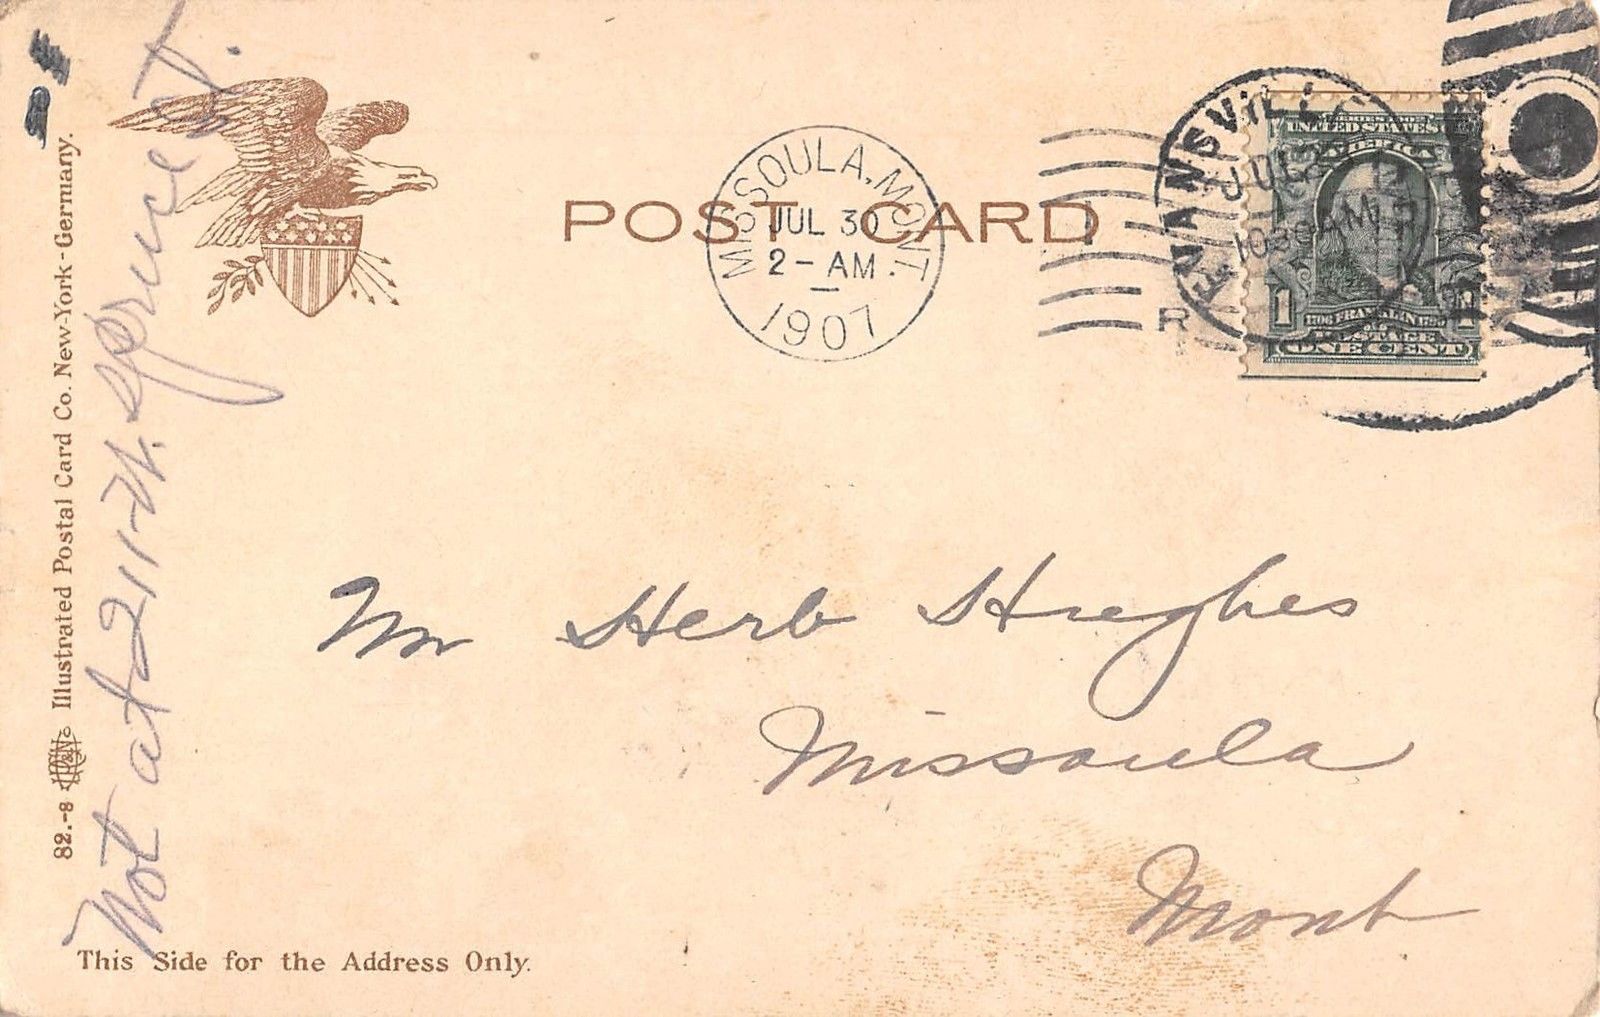 POST CARD
MISSOULA, MONT.
JUL 30
2-AM.
1907
EVANSVILLE
JUL
1030AM
R
UNITED STATES
AMERICA
1 1
FRANKLIN
POSTAGE
ONE CENT
Mr Herb Hughes
Missoula
Mont
Not at 211-N. Spruce St.
82.-8 Illustrated Postal Card Co. New-York-Germany.
This Side for the Address Only.